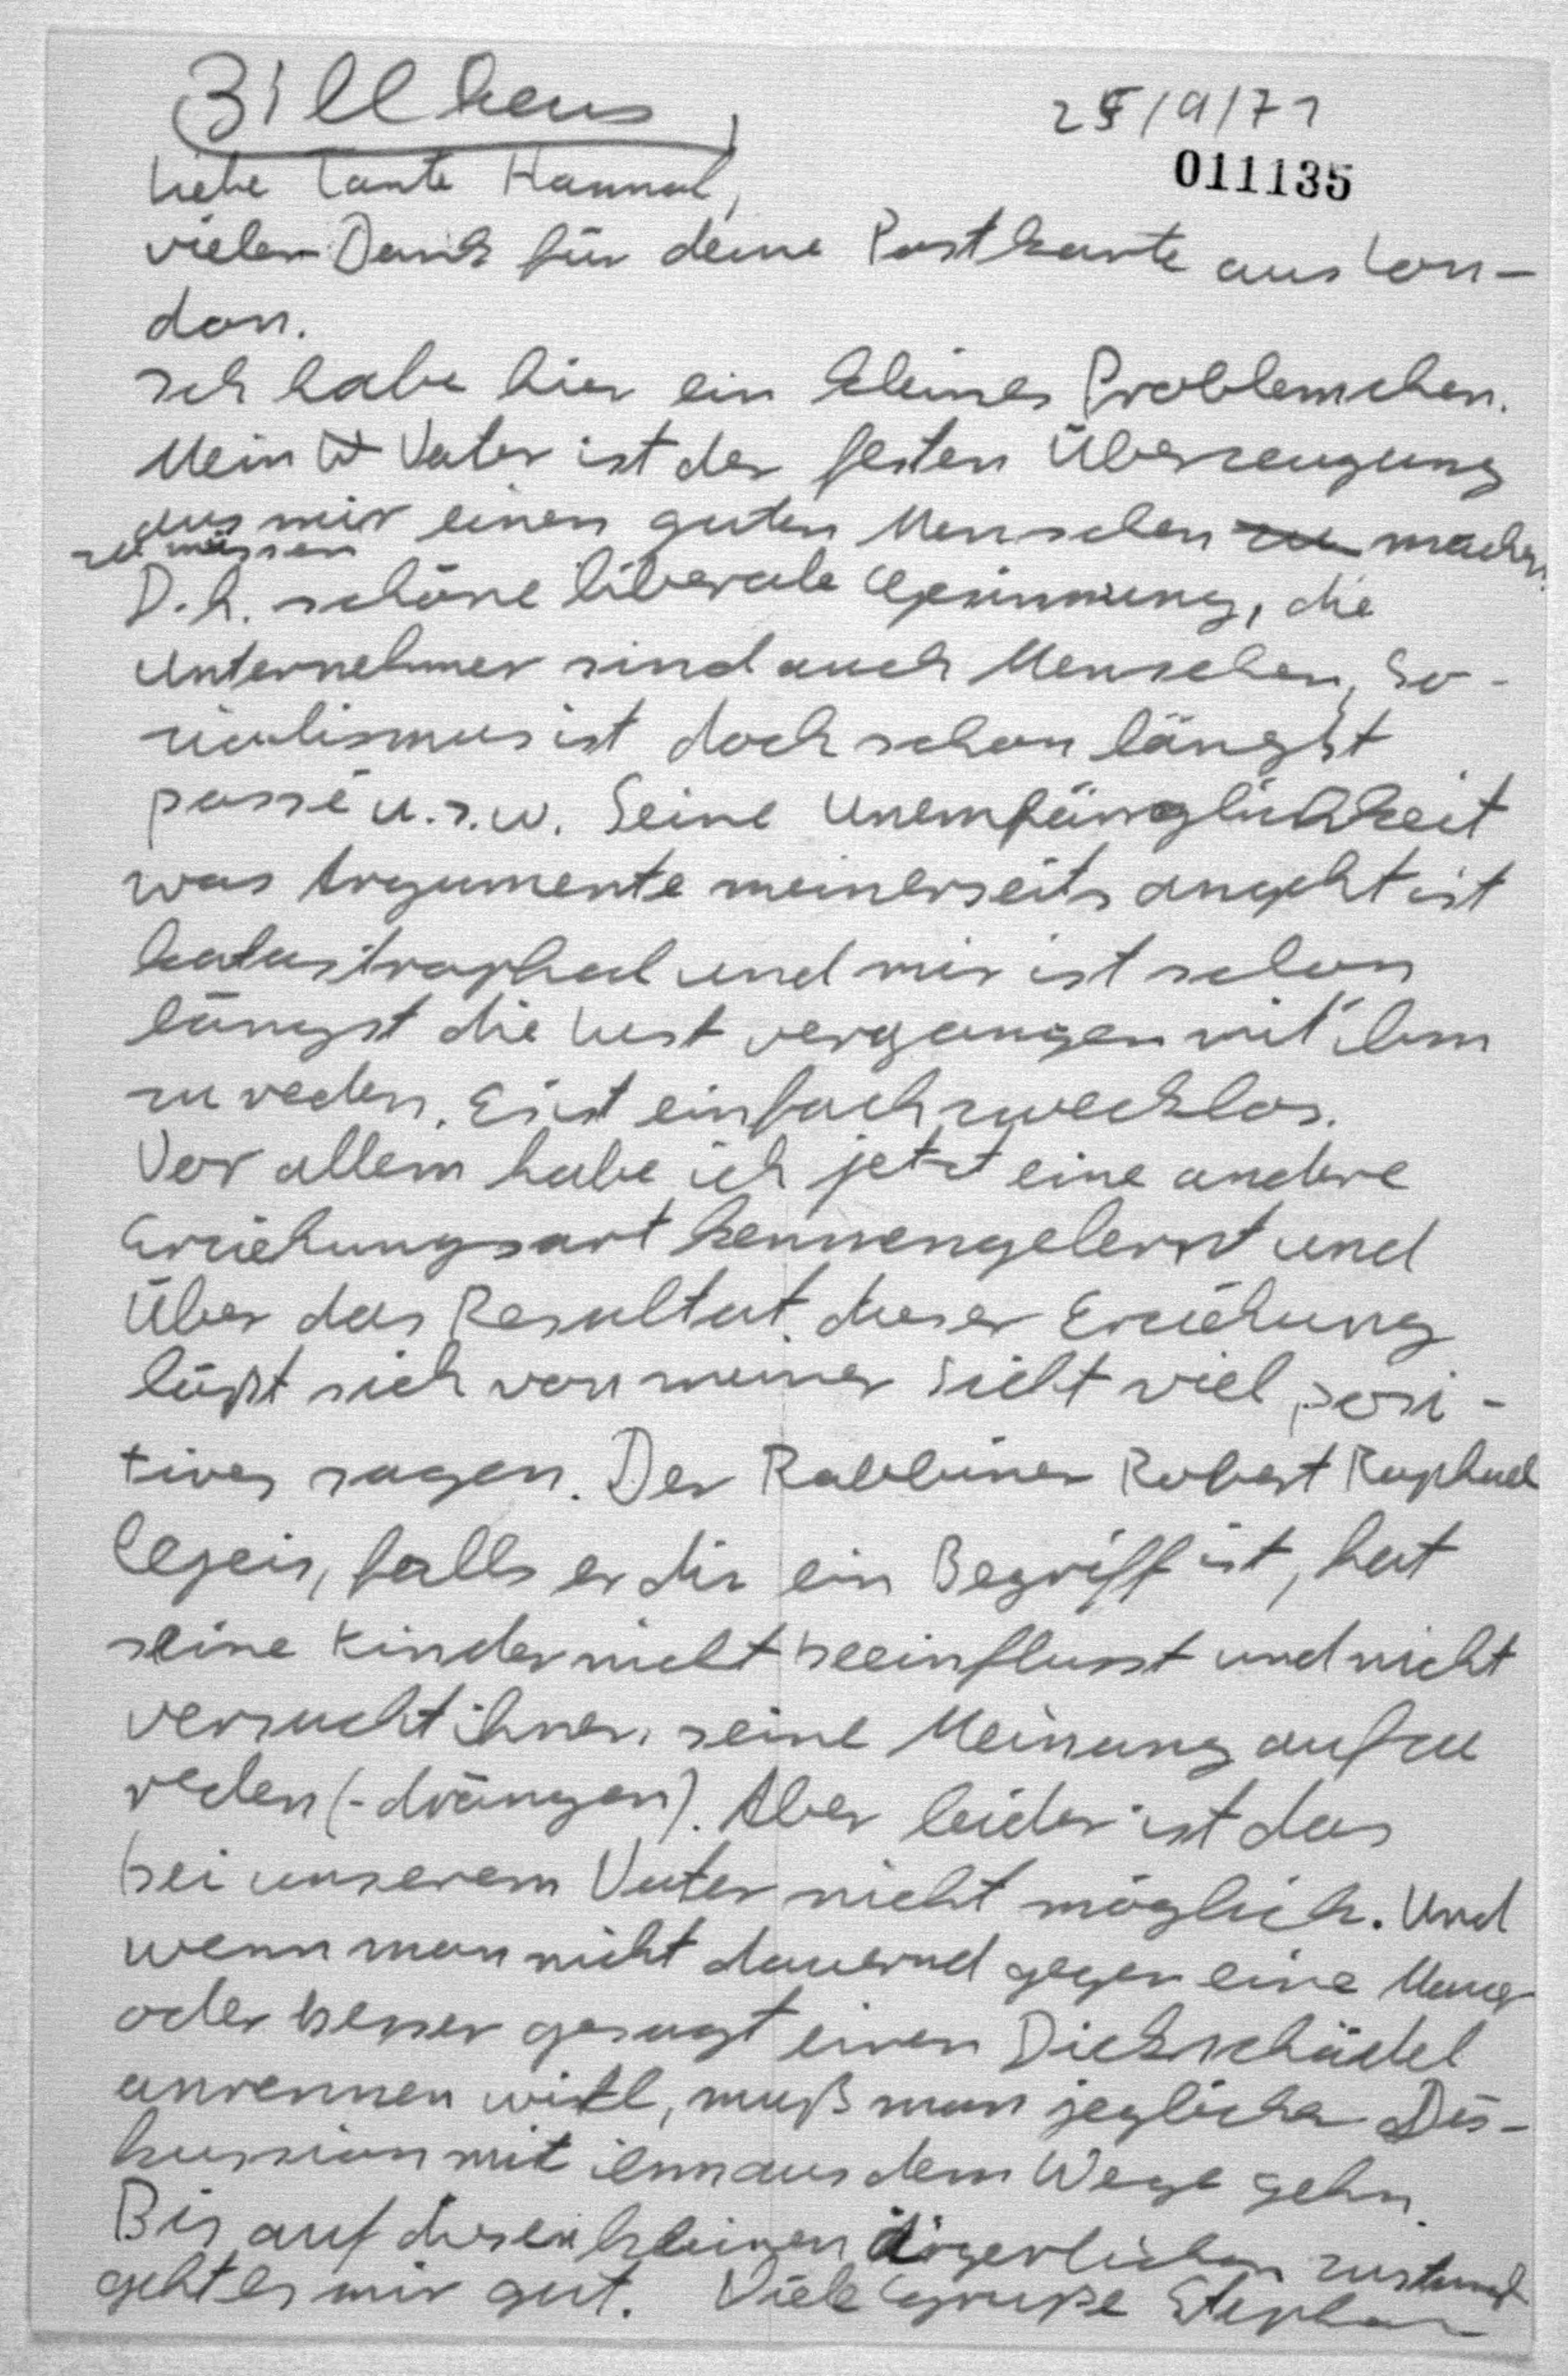 25/9/71
011135
Liebe Tante Hannah,
vielen Dank für deine Postkarte aus Lon-
don.
Ich habe hier ein kleines Problemchen.
Mein Vater ist der festen Überzeugung
aus mir einen guten Menschen zu machen
zu müssen.
D.h. schöne liberale Gesinnung, die
Unternehmer sind auch Menschen, So-
zialismus ist doch schon längst
passé u.s.w. Seine Unempfänglichkeit
was Argumente meinerseits angeht ist
katastrophal und mir ist schon
längst die Lust vergangen mit ihm
zu reden. Es ist einfach zwecklos.
Vor allem habe ich jetzt eine andere
Erziehungsart kennengelernt und
Über das Resultat dieser Erziehung
läßt sich von meiner Sicht viel posi-
tives sagen. Der Rabbiner Robert Raphael
Gegeis, falls er dir ein Begriff ist, hat
seine Kinder nicht beeinflusst und nicht
versucht ihnen seine Meinung aufzu
reden (-drängen). Aber leider ist das
bei unserem Vater nicht möglich. Und
wenn man nicht dauernd gegen eine Mauer
oder besser gesagt einen Dickschädel
anrennen will, muß man jeglicher Dis-
kussion mit ihm aus dem Wege gehn.
Bis auf diesen kleinen ärgerlichen Zustand
geht es mir gut. Viele Grüße Stephan